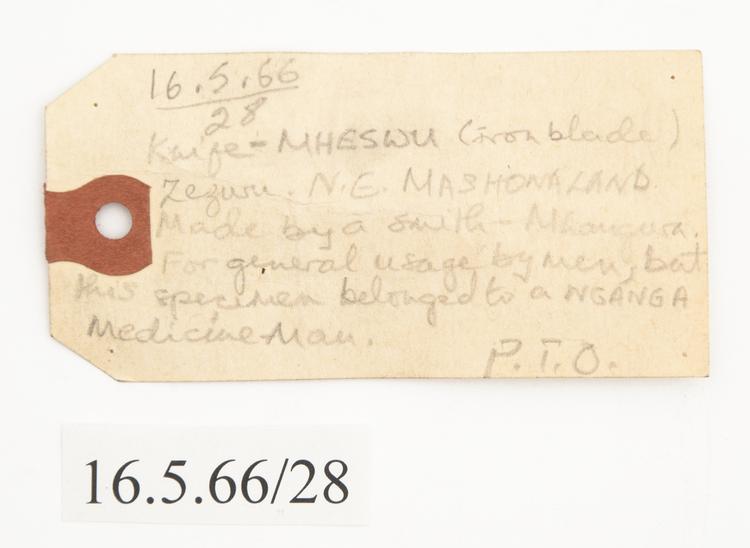 16.5.66
28
Knife - MHESWU (iron blade)
Zezuru. N.E. MASHONALAND.
Made by a smith - Mhangura.
For general usage by men, but
this specimen belonged to a NGANGA
Medicine-Man.
P.T.O.
16.5.66/28